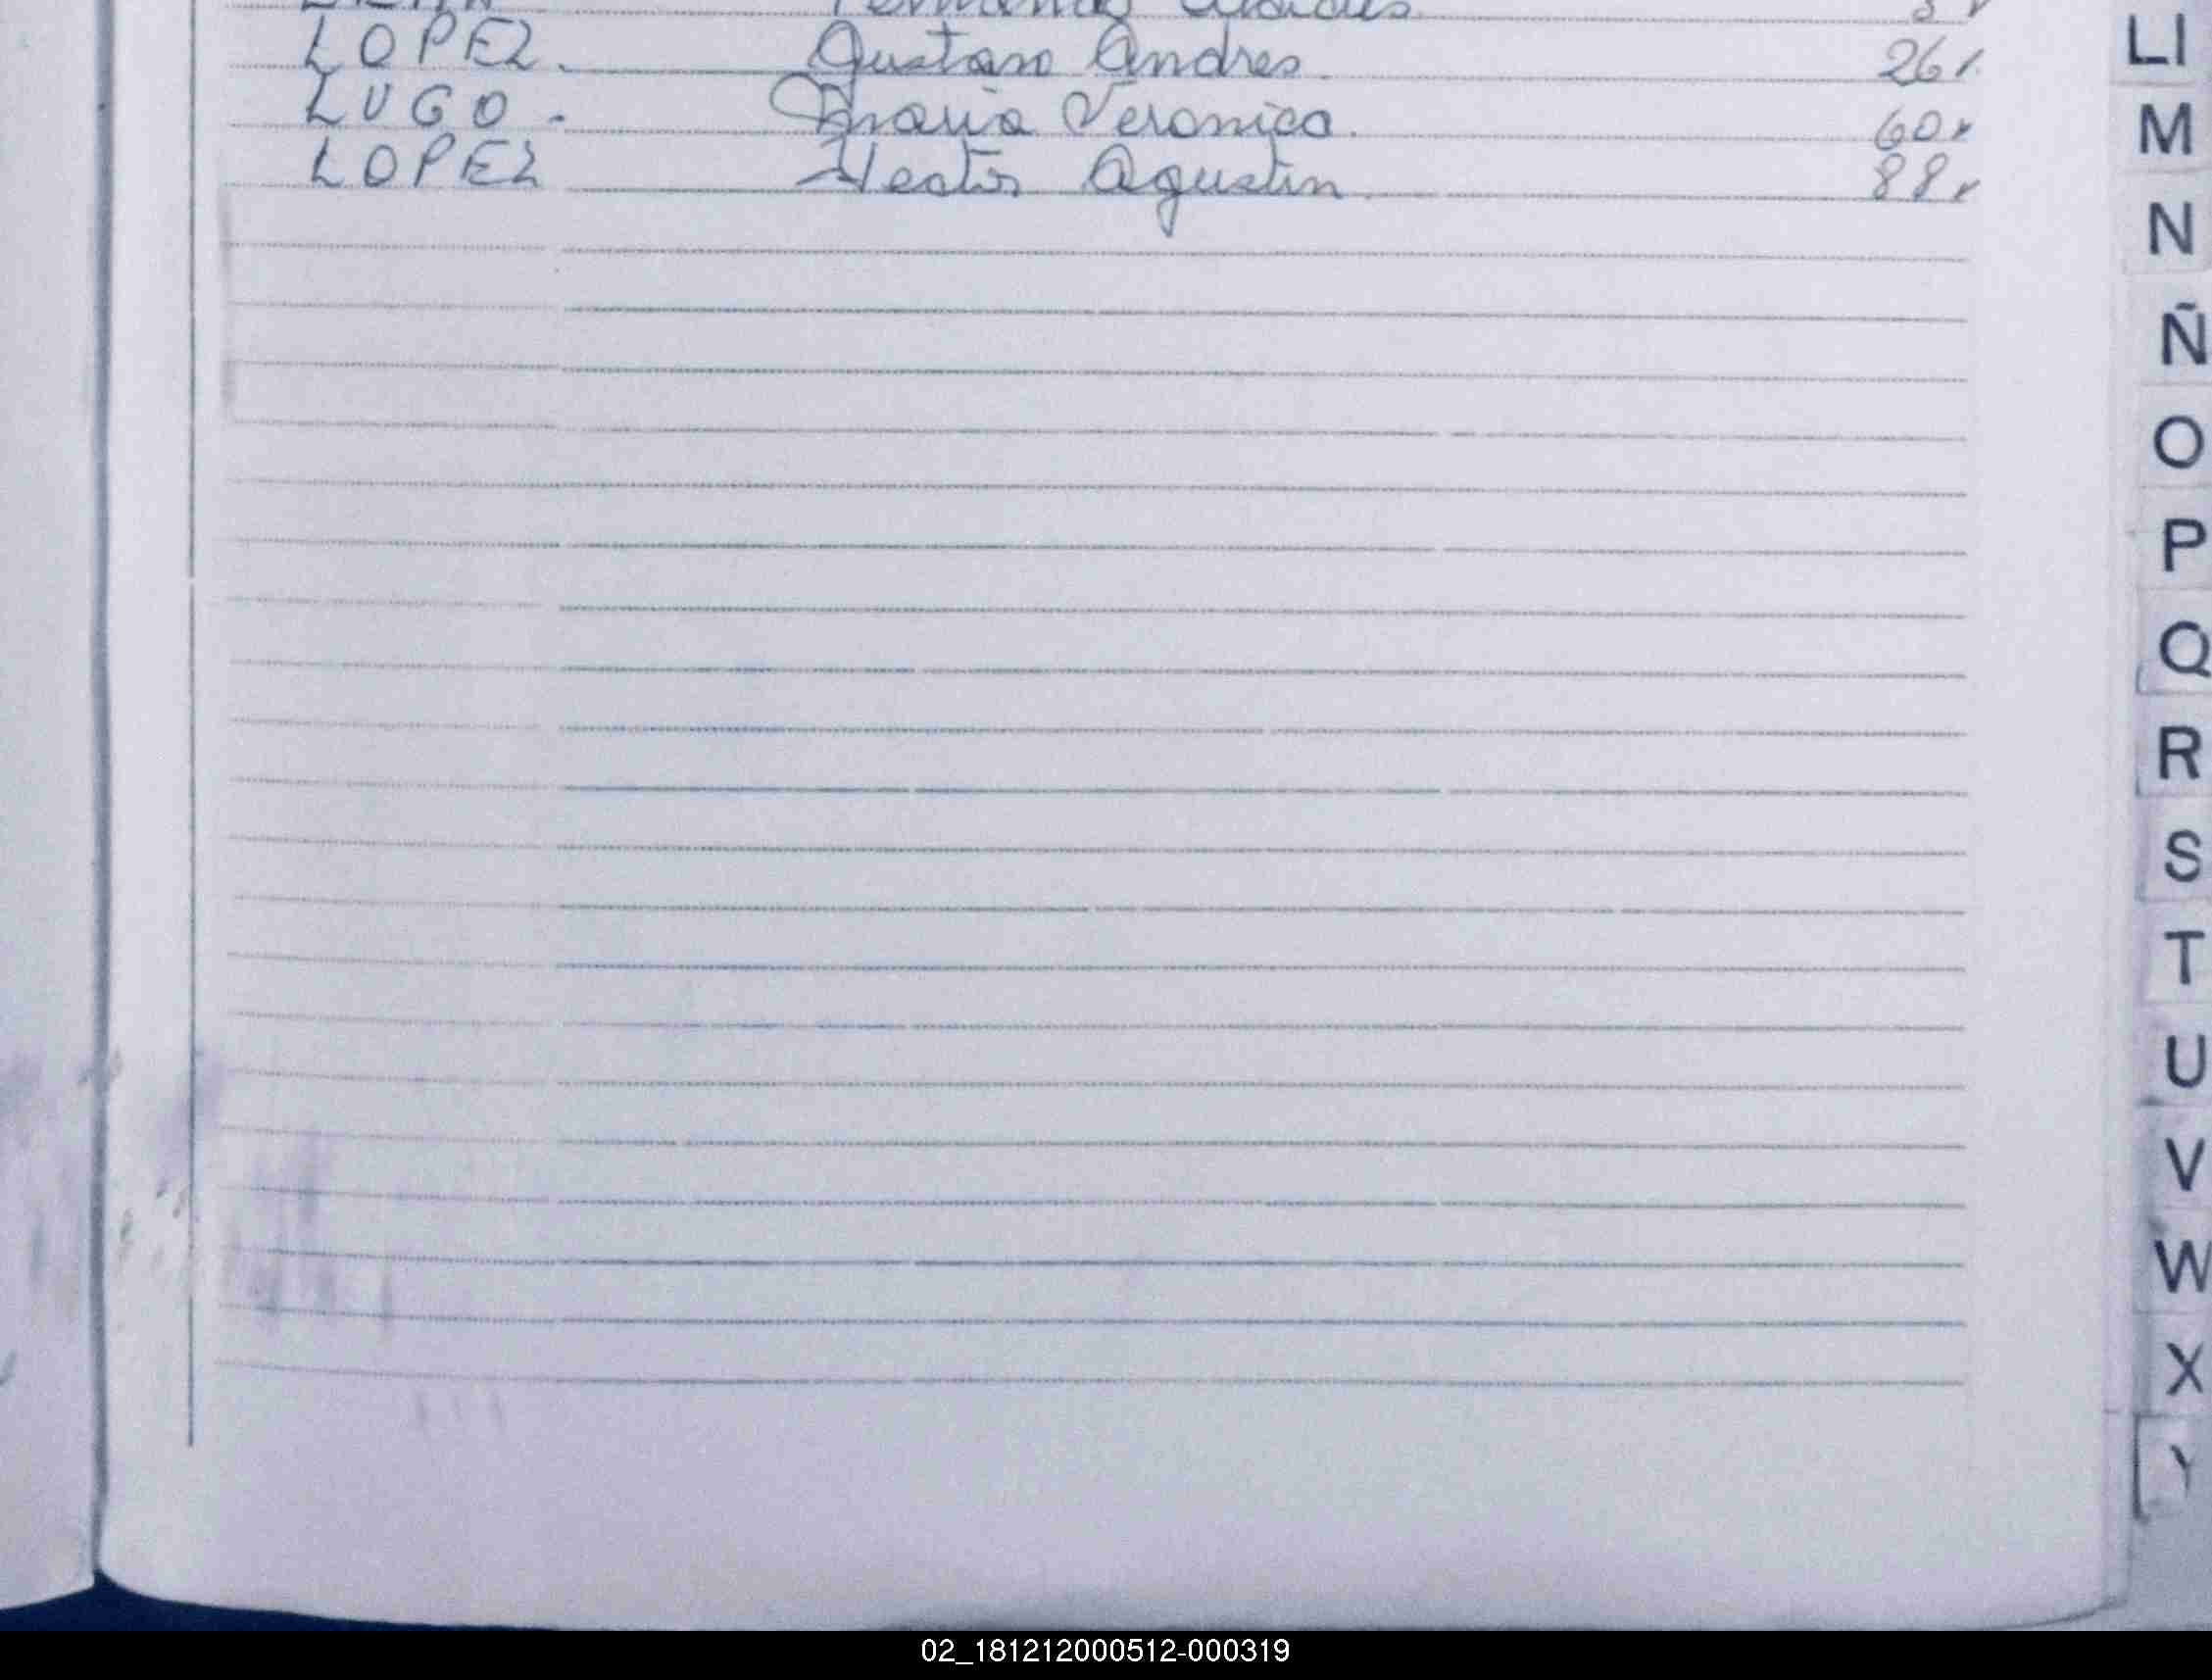 LOPEZ. Gustavo Andres. 26v
LUGO. Maria Veronica. 60v
LOPEZ Hector Agustin. 88v
LI
M
N
Ñ
O
P
Q
R
S
T
U
V
W
X
Y
02_181212000512-000319